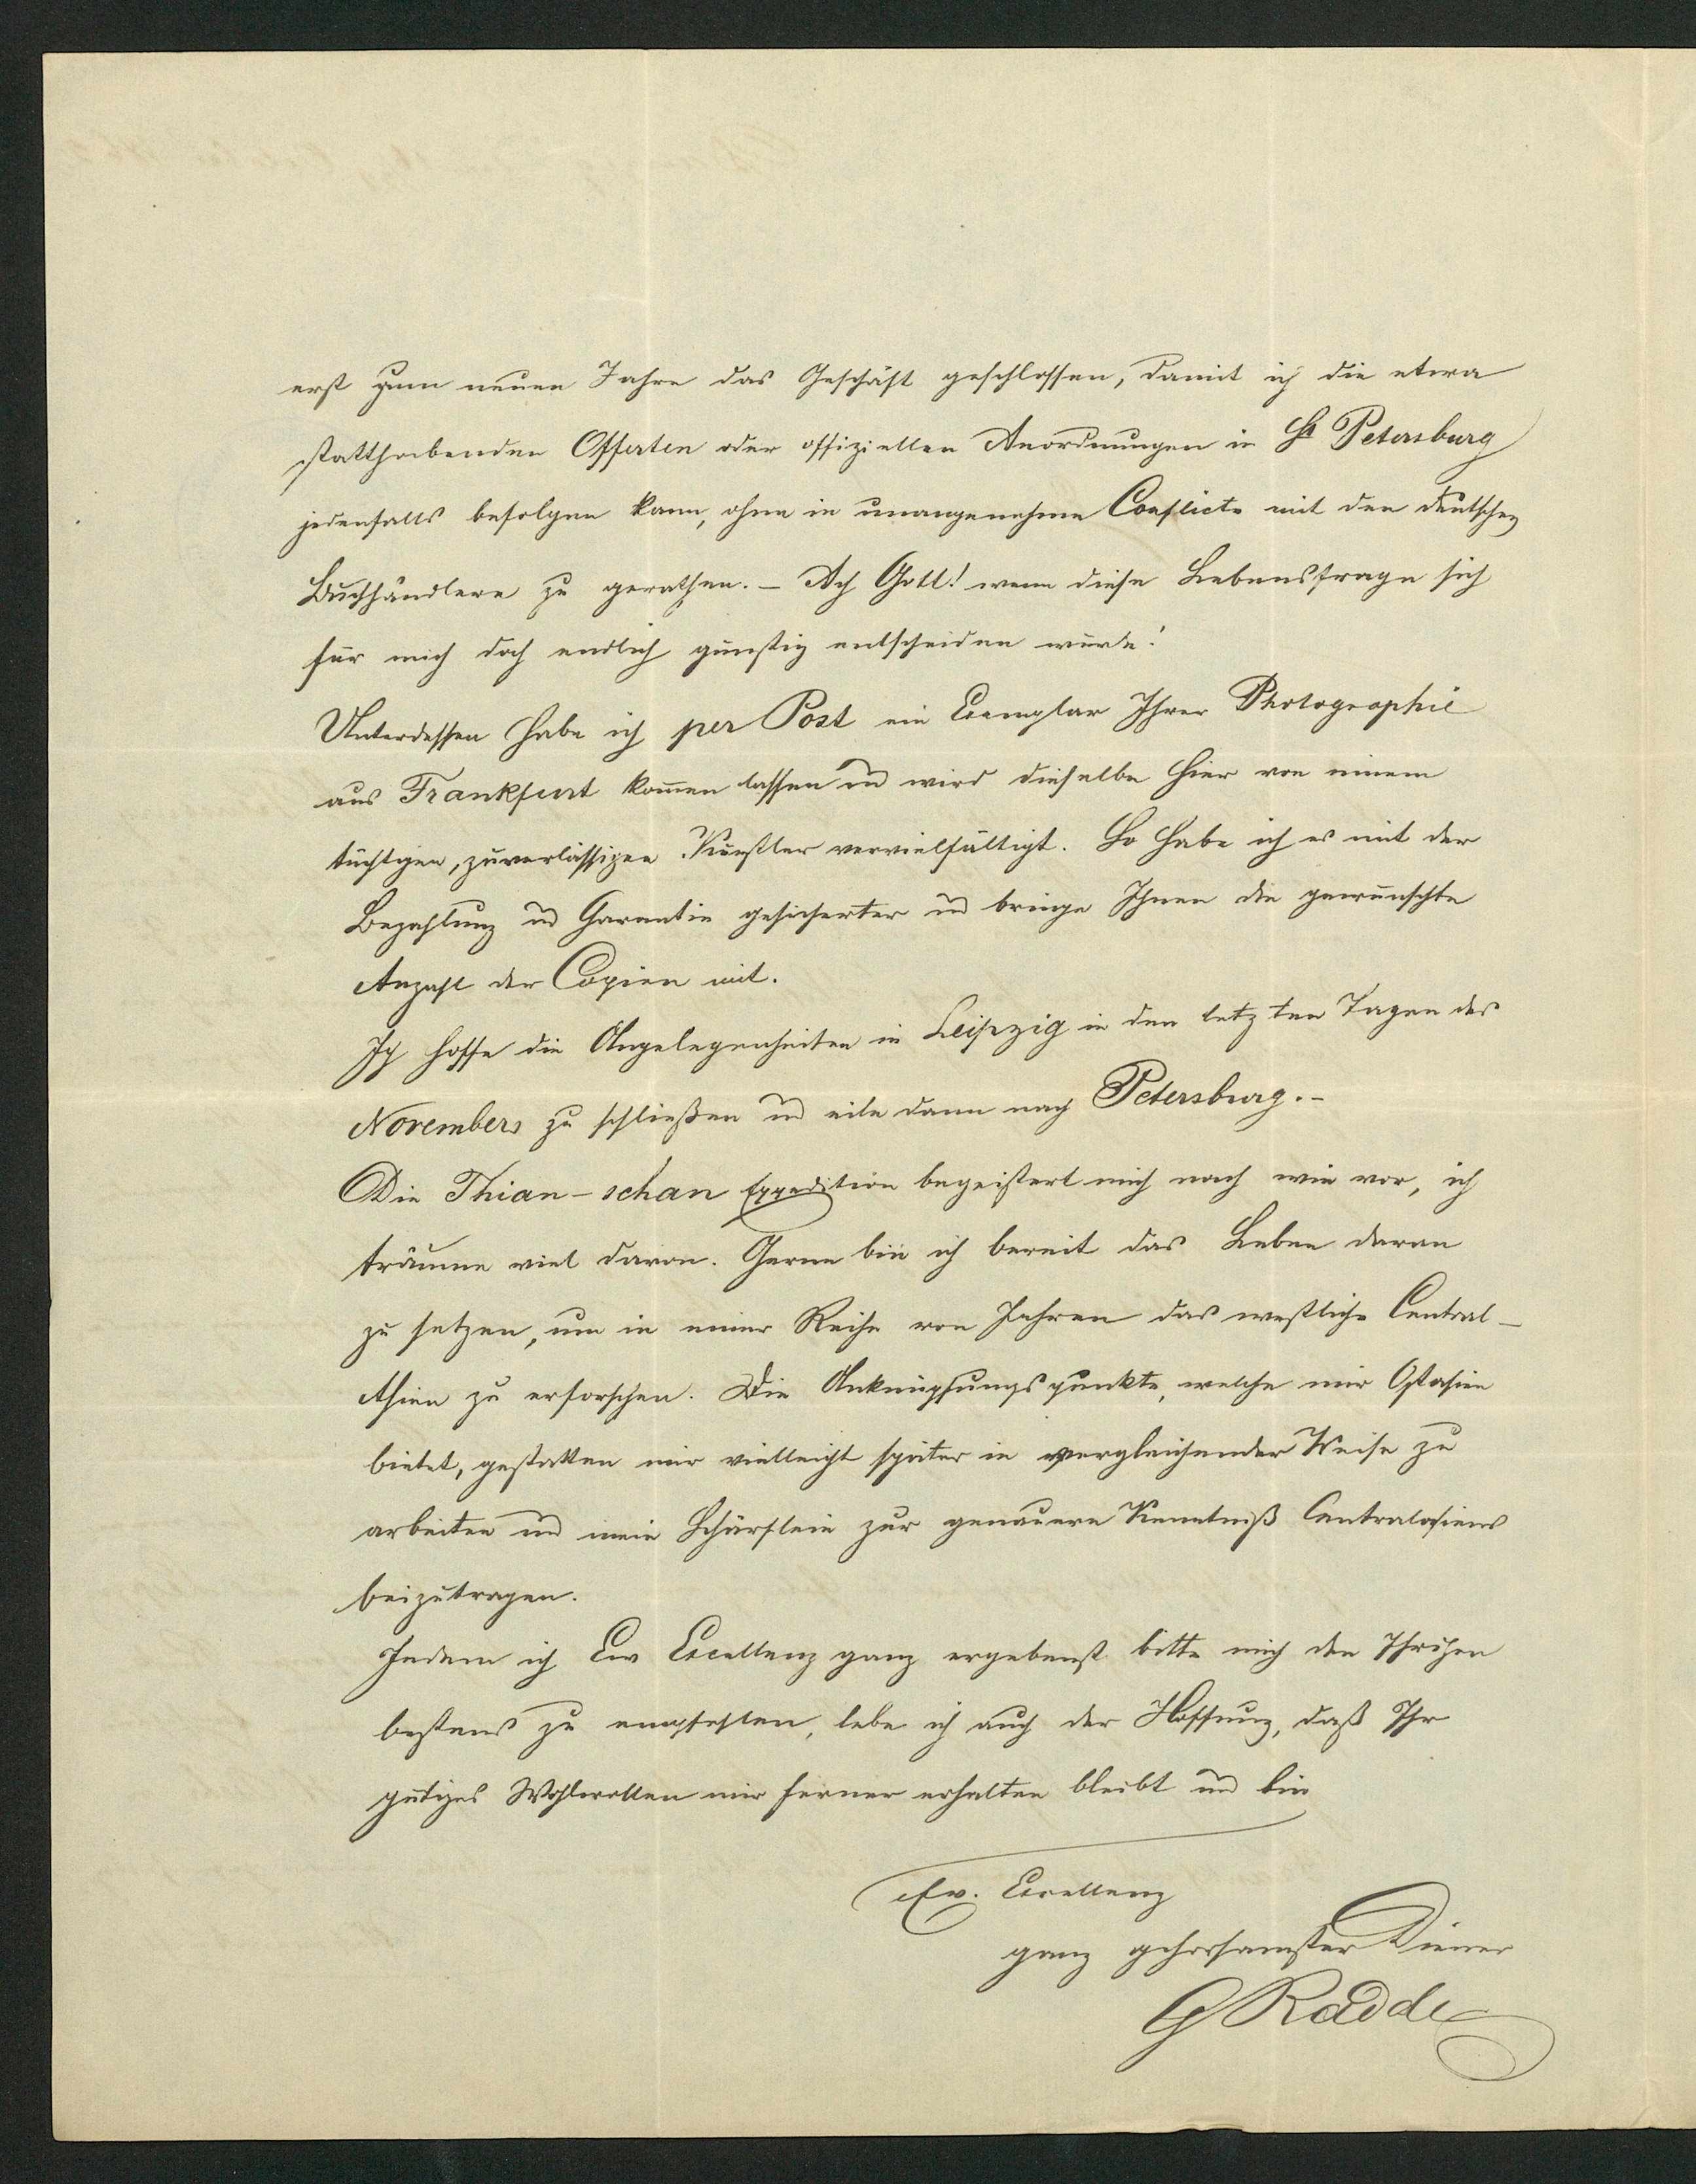 erst zum neuen Jahre das Geschäft geschlossen, damit ich die etwa
statthabenden Offerten oder offiziellen Anordnungen in St Petersburg
jedenfalls befolgen kann, ohne in unangenehme Conflicte mit den deutschen
Buchhändlern zu gerathen. – Ach Gott! wenn diese Lebensfrage sich
für mich doch endlich günstig entscheiden würde!
Unterdessen habe ich per Post ein Exemplar Ihrer Photographie
aus Frankfurt kom̄en lassen und wird dieselbe hier von einem
tüchtigen, zuverlässigen Künstler vervielfältigt. So habe ich es mit der
Bezahlung und Garantie gesicherter und bringe Ihnen die gewünschte
Anzahl der Copien mit.
Ich hoffe die Angelegenheiten in Leipzig in den letzten Tagen des
Novembers zu schließen und eile dann nach Petersburg. –
Die Thian-schan Expedition begeistert mich nach wie vor, ich
träume viel davon. Gerne bin ich bereit das Leben daran
zu setzen, um in einer Reihe von Jahren das westliche Central-
Asien zu erforschen. Die Anknüpfungspunkte, welche mir Ostasien
bietet, gestatten mir vielleicht später in vergleichender Weise zu
arbeiten und mein Schärflein zur genauern Kenntniß Centralasiens
beizutragen.
Indem ich Ew Excellenz ganz ergebenst bitte mich den Ihrigen
bestens zu empfehlen, lebe ich auch der Hoffnung, daß Ihr
gütiges Wohlwollen mir ferner erhalten bleibt und bin
Ew. Excellenz
ganz gehorsamster Diener
G Radde